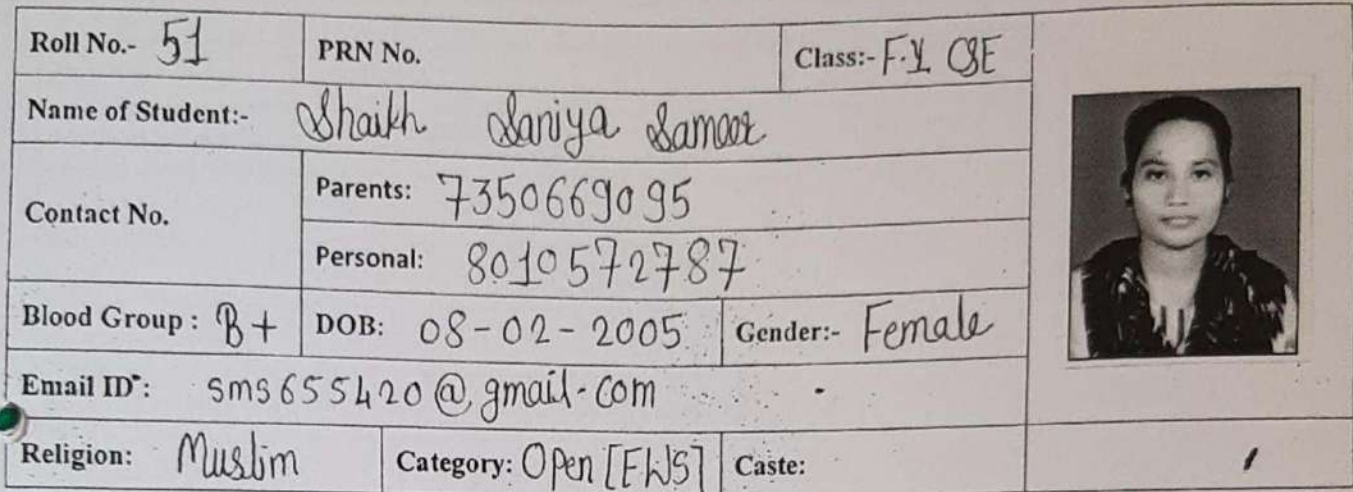 Roll No.- 51 PRN No. Class:- F.Y CSE
Name of Student:- Shaikh Saniya Sameer
Contact No.
Parents: 7350669095
Personal: 8010572787
Blood Group : B+ DOB: 08-02-2005 Gender:- Female
Email ID : sms655420@gmail.com
Religion: Muslim Category: Open [EWS] Caste: